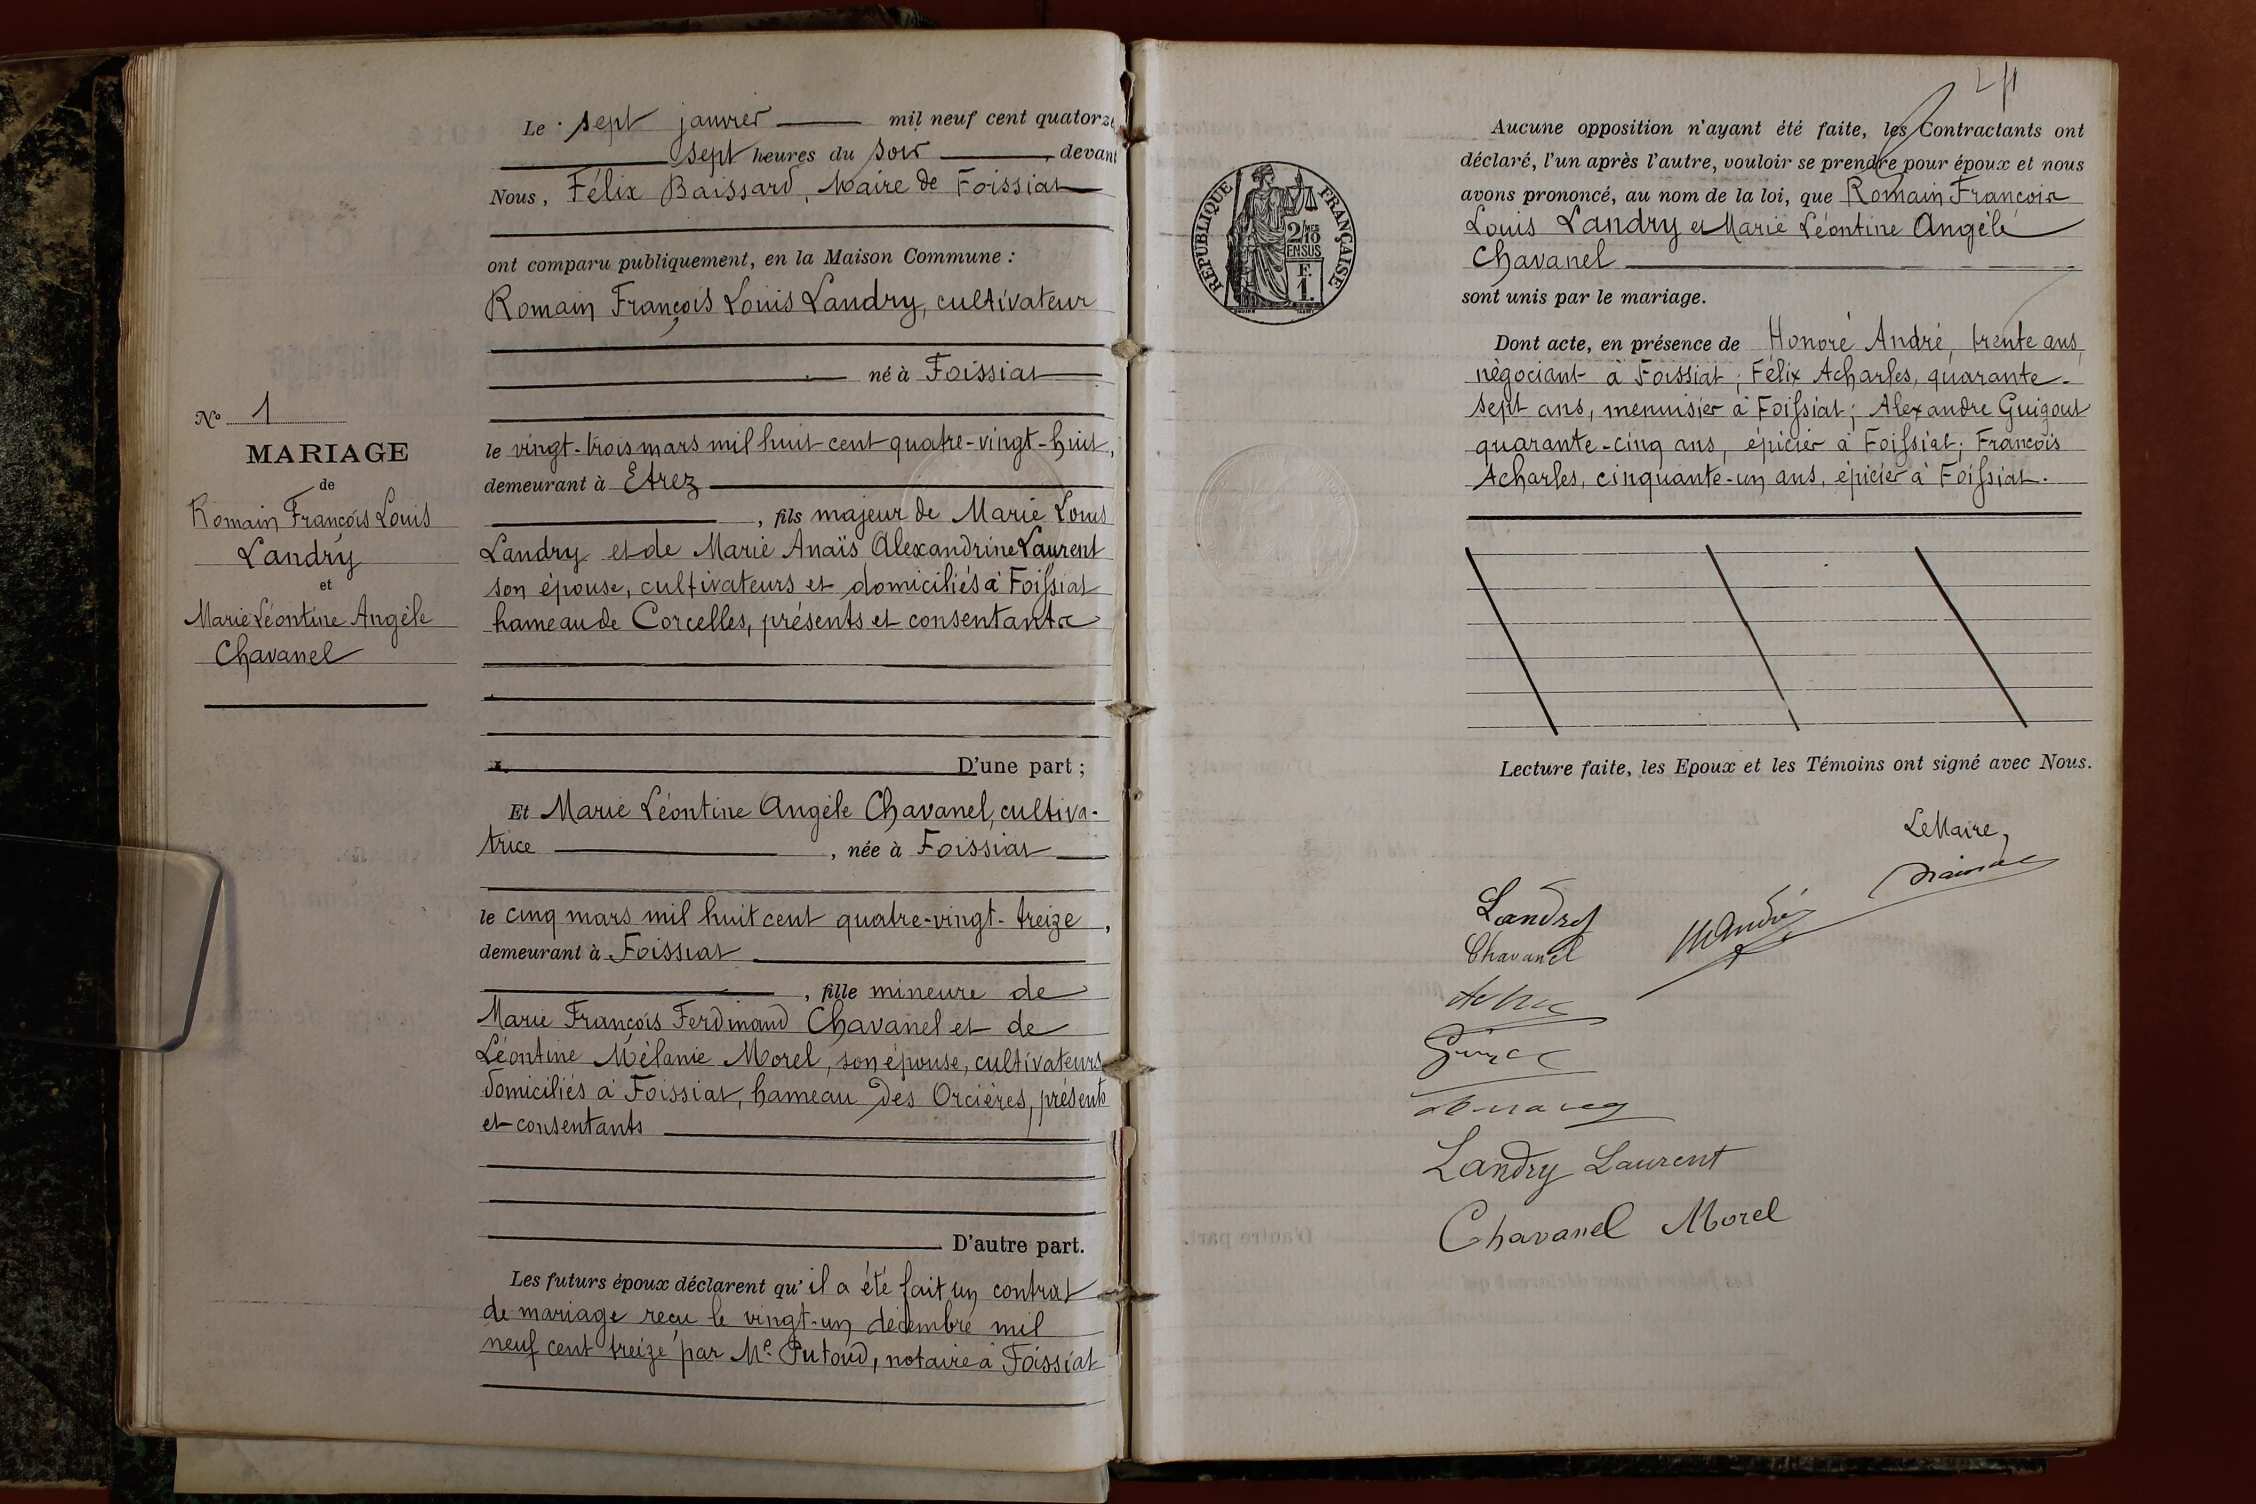 Le sept janvier mil neuf cent quatorze
sept heures du soir, devant
Nous, Félix Baissard, Maire de Foissiat
ont comparu publiquement, en la Maison Commune :
Romain François Louis Landry, cultivateur
né à Foissiat
le vingt-trois mars mil huit cent quatre-vingt-huit,
demeurant à Etrez
, fils majeur de Marie Louis
Landry et de Marie Anaïs Alexandrine Laurent
son épouse, cultivateurs et domiciliés à Foissiat
hameau de Corcelles, présents et consentants
D'une part ;
Et Marie Léontine Angèle Chavanel, cultiva-
trice, née à Foissiat
le cinq mars mil huit cent quatre-vingt-treize,
demeurant à Foissiat
, fille mineure de
Marie François Ferdinand Chavanel et de
Léontine Mélanie Morel, son épouse, cultivateurs
domiciliés à Foissiat, hameau des Orcières, présents
et consentants
D'autre part.
Les futurs époux déclarent qu'il a été fait un contrat
de mariage reçu le vingt-un décembre mil
neuf cent treize par Me Putoud, notaire à Foissiat
No 1
MARIAGE
de
Romain François Louis
Landry
et
Marie Léontine Angèle
Chavanel
RÉPUBLIQUE FRANÇAISE
2/10 MES
EN SUS
F.
1.
Aucune opposition n'ayant été faite, les Contractants ont
déclaré, l'un après l'autre, vouloir se prendre pour époux et nous
avons prononcé, au nom de la loi, que Romain François
Louis Landry et Marie Léontine Angèle
Chavanel
sont unis par le mariage.
Dont acte, en présence de Honoré André, trente ans,
négociant à Foissiat ; Félix Acharles, quarante-
sept ans, menuisier à Foissiat ; Alexandre Guigout
quarante-cinq ans, épicier à Foissiat ; François
Acharles, cinquante-un ans, épicier à Foissiat.
Lecture faite, les Epoux et les Témoins ont signé avec Nous.
Le Maire,
Landry
Chavanel
H André
Landry Laurent
Chavanel Morel